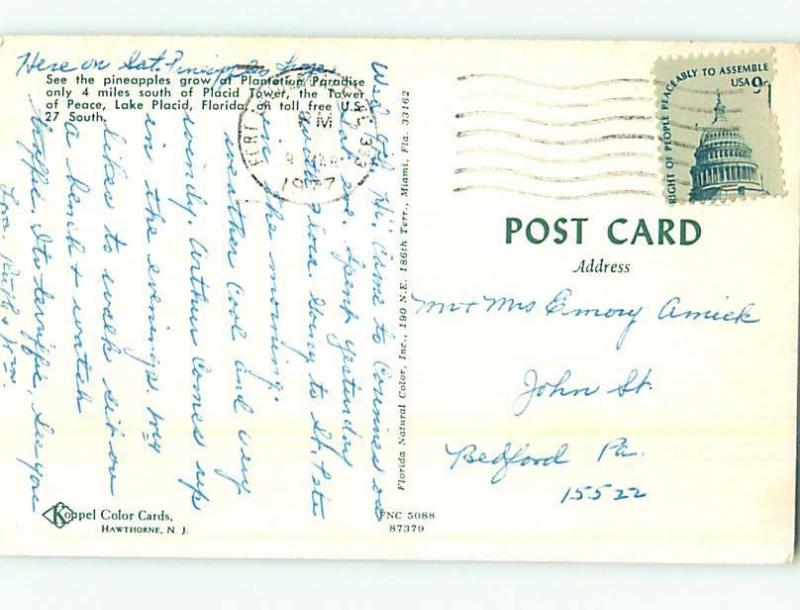 Here on Sat. Pineapples
See the pineapples grow at Plantation Paradise
only 4 miles south of Placid Tower, the Tower
of Peace, Lake Placid, Florida, on toll free U.S.
27 South.
Well Hi! Came to Connies on
Sat eve. Spent yesterday
with Going to St. Pete
in the morning.
weather cool and very
windy. Arthur comes up
in the evenings. My
likes to walk sit on
a bench & watch
traffic. Its terrific, See you
Love Ruth & Wm.
Koppel Color Cards,
HAWTHORNE, N. J.
Florida Natural Color, Inc., 190 N.E. 186th Terr., Miami, Fla. 33162
FNC 5088
87379
FORT
PM
MAR
1977
RIGHT OF PEOPLE PEACEABLY TO ASSEMBLE
USA 9
POST CARD
Address
Mr & Mrs Emory Amick
John St.
Bedford Pa.
15522